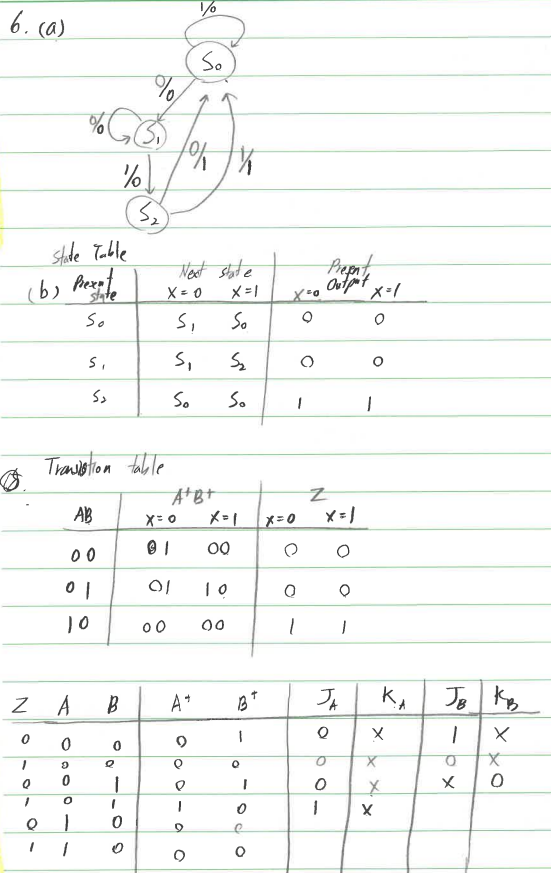 6. (a)
1/0
S₀
0/0
0/0 S₁
0/1 1/1
1/0
S₂
State Table
(b) Present state Next state Present Output
X=0 X=1 X=0 X=1
S₀ S₁ S₀ 0 0
S₁ S₁ S₂ 0 0
S₂ S₀ S₀ 1 1
Transition table
A⁺B⁺ Z
AB X=0 X=1 X=0 X=1
00 01 00 0 0
01 01 10 0 0
10 00 00 1 1
Z A B A⁺ B⁺ J_A K_A J_B K_B
0 0 0 0 1 0 X 1 X
1 0 0 0 0 0 X 0 X
0 0 1 0 1 0 X X 0
1 0 1 1 0 1 X
0 1 0 0 0
1 1 0 0 0